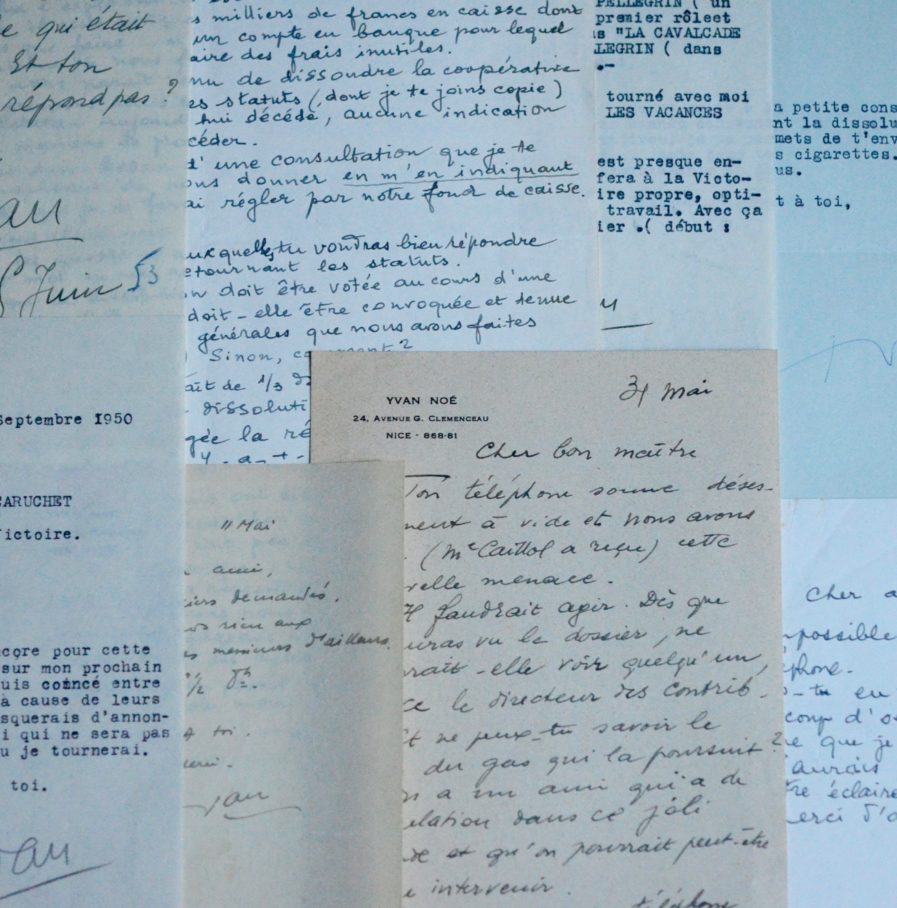 e qui était
Et ton
répond pas ?
Juin 53
s milliers de francs en caisse dont
un compte en banque pour lequel
aire des frais inutiles.
nu de dissoudre la coopérative
es statuts (dont je te joins copie)
hui décédé, aucune indication
céder.
d'une consultation que je te
ous donner en m'en indiquant
ai régler par notre fond de caisse.
uxquelles tu voudras bien répondre
etournant les statuts.
n doit être votée au cours d'une
doit-elle être convoquée et tenue
générales que nous avons faites
Sinon, comment ?
ait de 1/3 d
dissoluti
gée la ré
y-a-t-
PELLEGRIN ( un
premier rôleet
s "LA CAVALCADE
LEGRIN ( dans
.-
tourné avec moi
LES VACANCES
est presque en-
fera à la Victo-
ire propre, opti-
travail. Avec ça
ier .( début :
a petite cons
nt la dissolu
mets de t'env
s cigarettes.
us.
t à toi,
Septembre 1950
CARUCHET
Victoire.
ncore pour cette
sur mon prochain
uis coincé entre
à cause de leurs
squerais d'annon-
i qui ne sera pas
u je tournerai.
toi.
11 Mai
ami,
iers demandés.
os rien aux
s messieurs d'ailleurs.
toi.
erci.
YVAN NOÉ
24, AVENUE G. CLEMENCEAU
NICE - 868-81
31 Mai
Cher bon maître
Ton téléphone sonne déses-
ment à vide et nous avons
(Me Caittol a reçu) cette
velle menace.
Il faudrait agir. Dès que
uras vu le dossier, ne
rait-elle voir quelqu'un,
ce le directeur des contrib.
Et ne peux-tu savoir le
du gas qui la poursuit ?
n a un ami qui a de
elation dans ce joli
et qu'on pourrait peut-être
intervenir.
téléphone
Cher a
mpossible
éphone.
-tu eu
coup d'o
re que je
aurais
tre éclaire
erci d'a